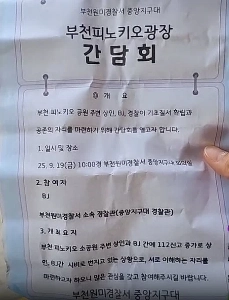 부천원미경찰서 중앙지구대
부천피노키오광장
간 담 회
개 요
부천 피노키오 공원 주변 상인, BJ, 경찰이 기초질서 확립과
공존의 자리를 마련하기 위해 간담회를 열고자 합니다.
1. 일시 및 장소
25. 9. 19(금) 10:00경 부천원미경찰서 중앙지구대
2. 참 여 자
BJ
부천원미경찰서 소속 경찰관(중앙지구대 경찰관)
3. 개 최 요 지
부천 피노키오 소공원 주변 상인과 BJ 간에 112신고 증가로 상
인, BJ간 시비로 번지고 있는 상황으로, 서로 이해하는 자리를
마련하고자 하오니 많은 관심을 갖고 참여해주시길 바랍니다.
부천원미경찰서 중앙지구대